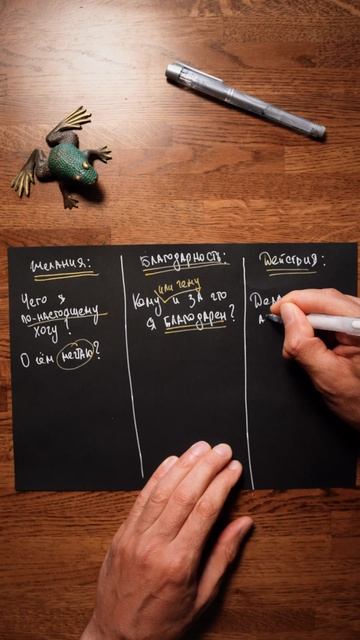 Желания:
Чего я
по-настоящему
хочу?
О чём мечтаю?
Благодарность:
или чему
Кому и за что
я благодарен?
Действия: